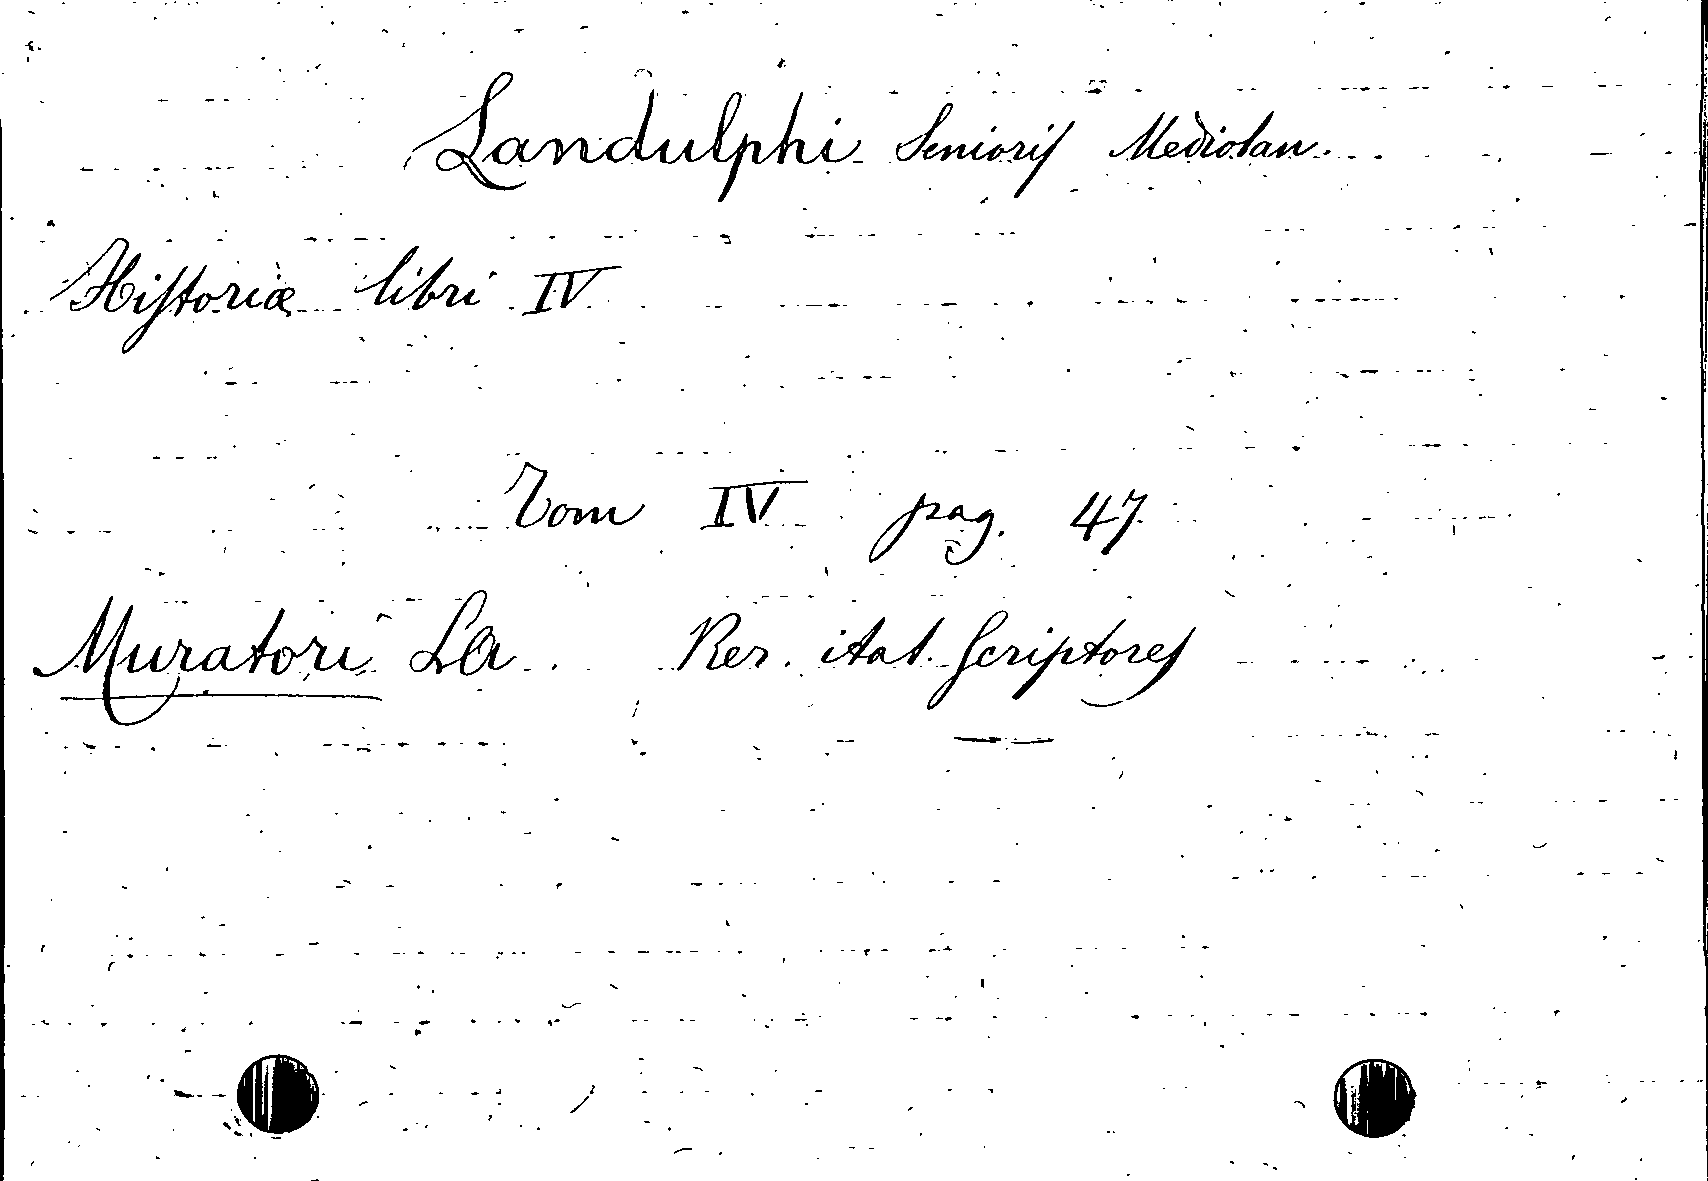 Landulphi Senioris Mediolan.
Historiæ libri IV
Tom IV pag. 47
Muratori LA. Rer. ital. Scriptores